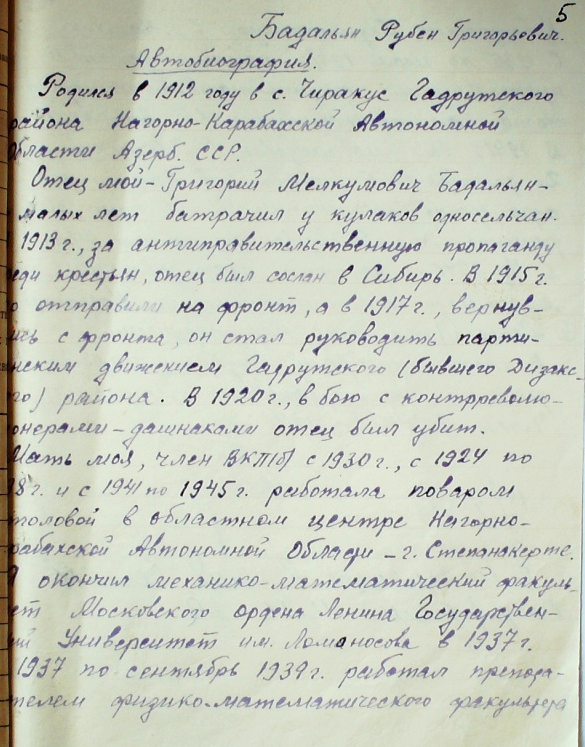 5
Бадальян Рубен Григорьевич.
Автобиография.
Родился в 1912 году в с. Чиракус Гадрутского
района Нагорно-Карабахской Автономной
Области Азерб. ССР.
Отец мой - Григорий Мелкумович Бадальян -
малых лет батрачил у кулаков односельчан.
1913 г., за антиправительственную пропаганду
еди крестьян, отец был сослан в Сибирь. В 1915 г.
о отправили на фронт, а в 1917 г., вернув-
ись с фронта, он стал руководить парти-
нским движением Гадрутского (бывшего Дизакс
го) района. В 1920 г., в бою с контрреволю-
онерами-дашнаками отец был убит.
Мать моя, член ВКП(б) с 1930 г., с 1924 по
8 г. и с 1941 по 1945 г. работала поваром
толовой в областном центре Нагорно-
рабахской Автономной Области - г. Степанакерте.
Я окончил механико-математический факуль-
ет Московского ордена Ленина Государствен-
ий Университет им. Ломаносова в 1937 г.
1937 по сентябрь 1939 г. работал препода-
телем физико-математического факультета